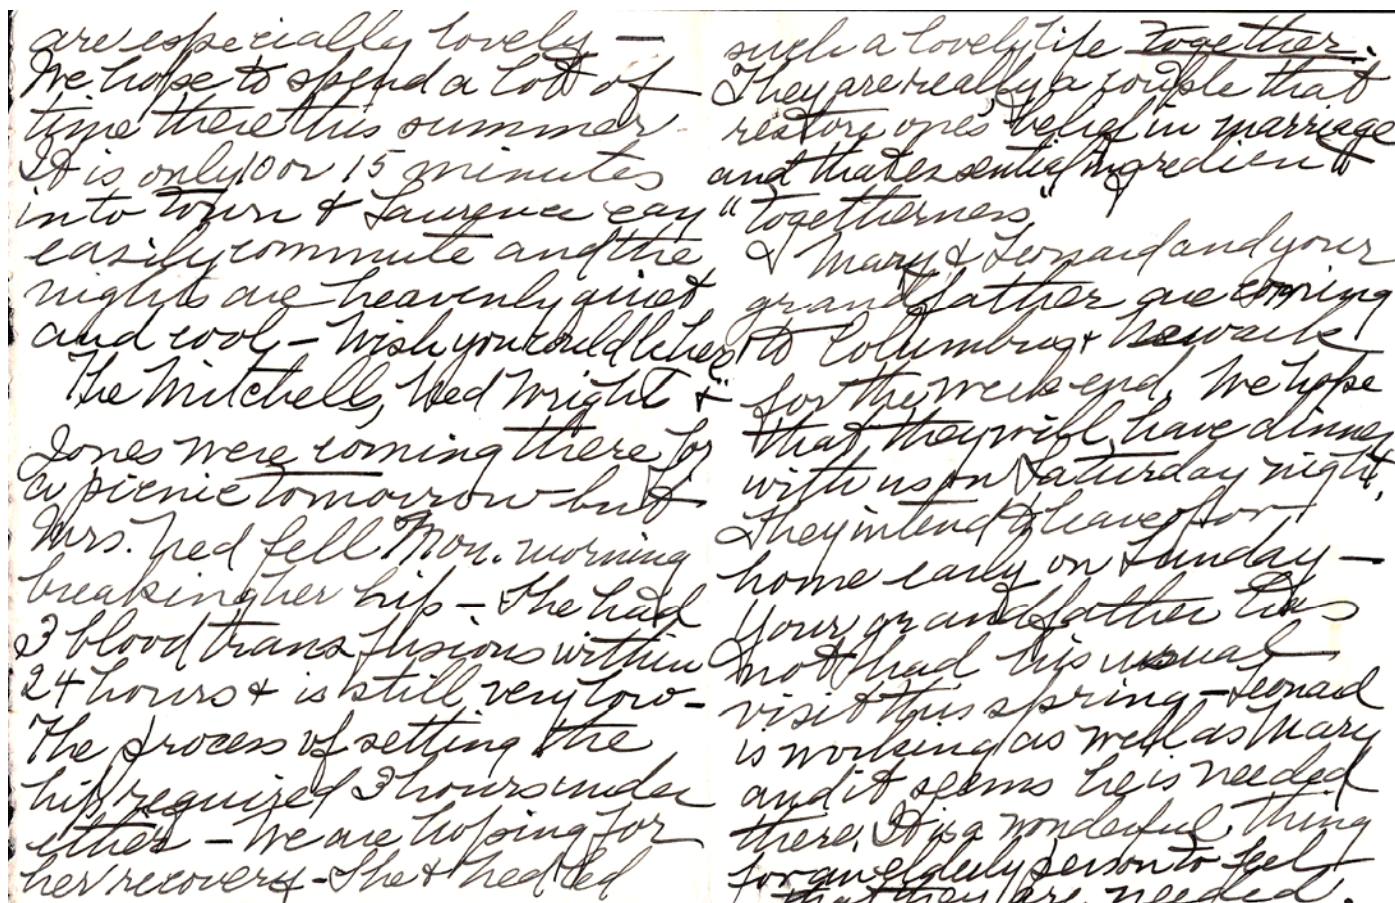 are especially lovely —
We hope to spend a lott of
time there this summer
It is only 10 or 15 minutes
into town & Laurence can
easily commute and the
nights are heavenly quiet
and cool – Wish you could be here
The Mitchells, Ned Wright &
Jones were coming there for
a picnic tomorrow but
Mrs. Ned fell Mon. morning
breaking her hip – She had
3 blood transfusions within
24 hours & is still very low –
The process of setting the
hip required 3 hours under
ether – We are hoping for
her recovery – She & Ned led
such a lovely life together.
They are really a couple that
restore ones belief in marriage
and that essential ingredient
"togetherness"
Mary & Leonard and your
grandfather are coming
to Columbus & Newark
for the week-end. We hope
that they will have dinner
with us on Saturday night.
They intend to leave for
home early on Sunday —
Your grandfather has
not had his usual
visit this spring – Leonard
is working as well as Mary
and it seems he is needed
there. It is a wonderful thing
for an elderly person to feel
that they are needed.